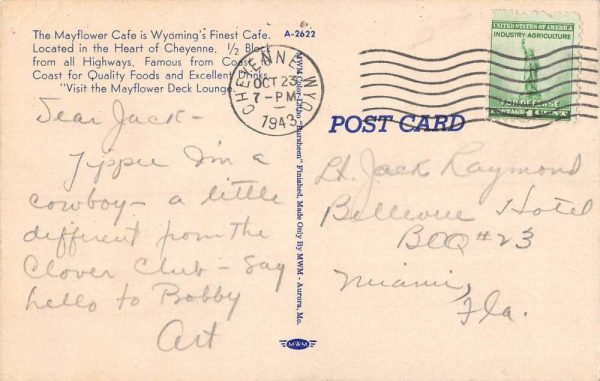 The Mayflower Cafe is Wyoming's Finest Cafe.
Located in the Heart of Cheyenne, 1/2 Block
from all Highways. Famous from Coast to
Coast for Quality Foods and Excellent Drinks.
"Visit the Mayflower Deck Lounge."
A-2622
CHEYENNE, WYO.
OCT 23
7-PM
1943
UNITED STATES OF AMERICA
INDUSTRY AGRICULTURE
FOR DEFENSE
POST CARD
Dear Jack-
Yippee I'm a
cowboy- a little
different from the
Clover Club- Say
hello to Bobby
Art
MWM Color-Litho "Buraheen" Finished, Made Only By MWM - Aurora, Mo.
MWM
Lt. Jack Raymond
Bellevue Hotel
BOQ #23
Miami,
Fla.